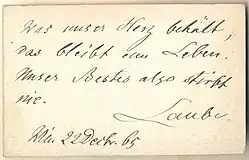 Was unser Herz behält,
das bleibt am Leben.
Unser Bestes also stirbt
nie.
Laube
Wln 22 Decbr. 65